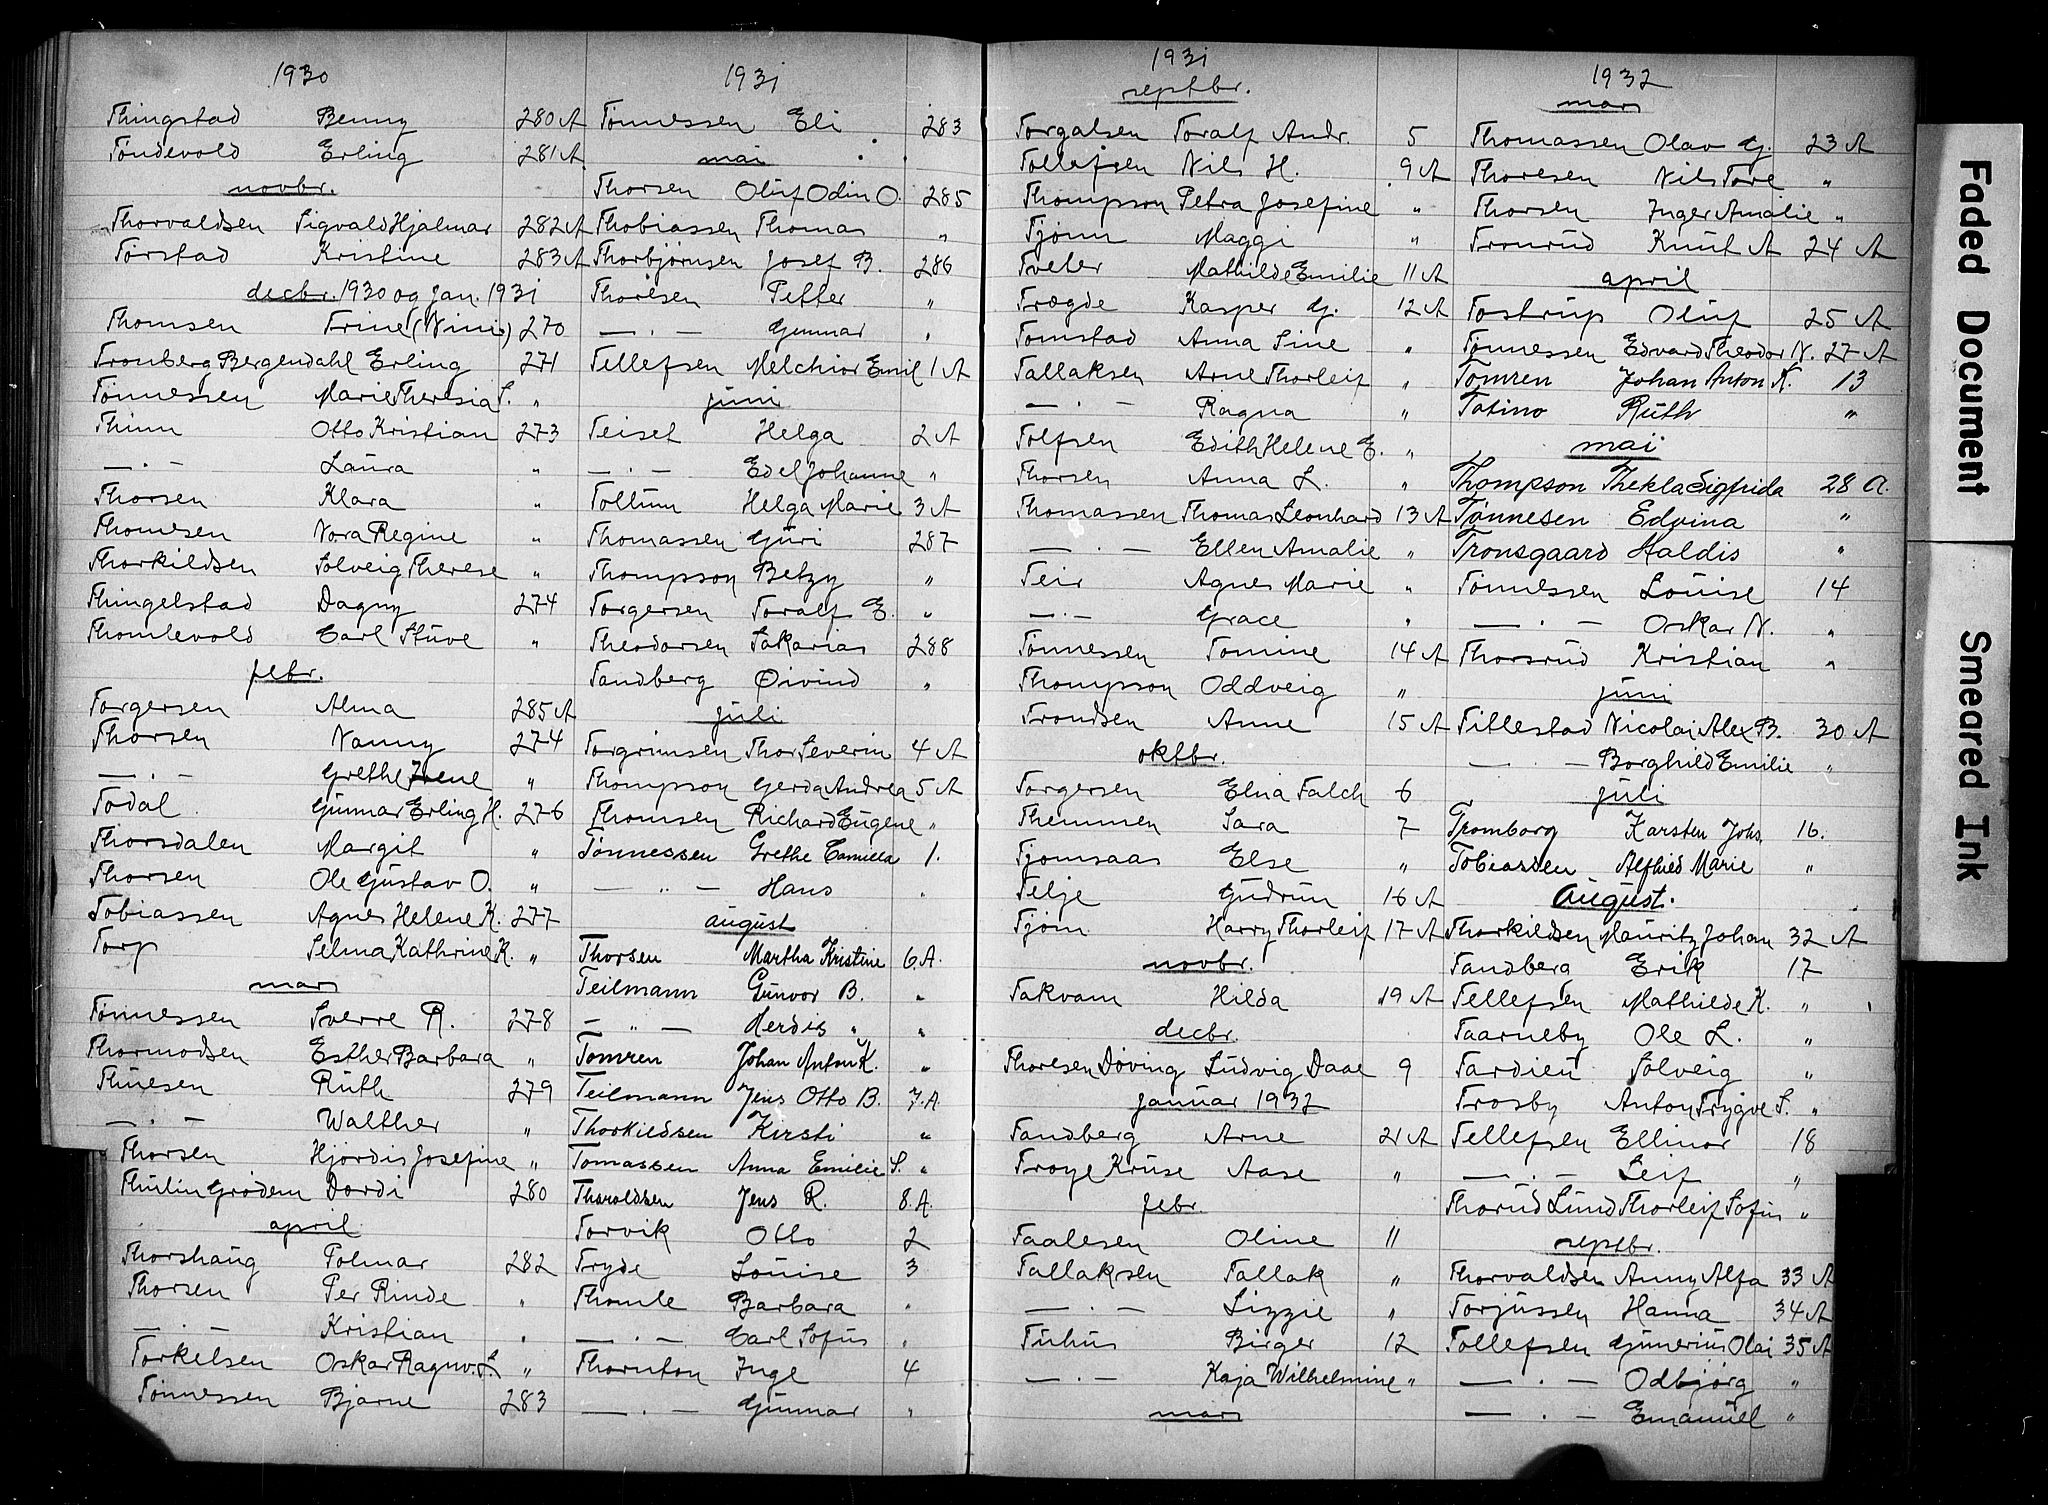 1930
Thingstad Benny 280 A
Tondevold Erling 281 A
novbr.
Thorvaldsen Sigvald Hjalmar 282 A
Torstad Kristine 283 A
decbr. 1930 og Jan. 1931
Thomsen Trine (Nini) 270
Tronberg Bergendahl Erling 271
Tönnessen Marie Theresia S. "
Thinn Otto Kristian 273
— . — Laura "
Thorsen Klara "
Thomesen Nora Regine "
Thorkildsen Solveig Therese "
Thingelstad Dagny 274
Thomlevold Carl Stuve "
febr.
Torgersen Alma 285 A
Thorsen Nanny 274
— . — Grethe Irene "
Todal Gunnar Erling H. 276
Thorsdalen Margit "
Thorsen Ole Gustav O. "
Tobiassen Agnes Helene K. 277
Torp Selma Kathrine K. "
mars
Tönnessen Sverre R. 278
Thormodsen Esther Barbara "
Thuesen Ruth 279
— . — Walther "
Thorsen Hjördis Josefine "
Thulin Grödem Dordi 280
april
Thorshaug Tolmar 282
Thorsen Per Rinde "
— . — Kristian "
Torkelsen Oskar Ragnv. S. "
Tönnessen Bjarne 283
1931
Tönnessen Eli 283
mai
Thorsen Oluf Odin O. 285
Thobiassen Thomas "
Thorbjørnsen Josef B. 286
Thoresen Petter "
— . — Gunnar "
Tellefsen Melchior Emil 1 A
juni
Teiset Helga 2 A
— . — Edel Johanne "
Tollum Helga Marie 3 A
Thomassen Guri 287
Thompson Betzy "
Torgersen Toralf E. "
Theodorsen Sakarias 288
Tandberg Øivind "
juli
Torgrimsen Thor Severin 4 A
Thompson Gerda Andrea 5 A
Thomsen Richard Eugene "
Tönnessen Grethe Camilla 1.
— " — Hans "
august
Thorsen Martha Kristine 6. A.
Teilmann Gunvor B. "
— " — Herdis " "
Tomren Johan Anton K. "
Teilmann Jens Otto B. 7. A.
Thorkildsen Kirsti "
Tomassen Anna Emilie S. "
Tharaldsen Jens R. 8. A.
Torvik Otto 2
Tryde Louise 3
Thomle Barbara "
— . — Carl Sofus "
Thornton Inge 4
— . — Gunnar "
1931
septbr.
Torgalsen Toralf Andr. 5
Tollefsen Nils H. 9 A
Thompson Petra Josefine "
Tjønn Maggi "
Tveter Mathilde Emilie 11 A
Trægde Kasper G. 12 A
Tomstad Anna Sine "
Tallaksen Arne Thorleif "
— . — Ragna "
Tolfsen Edith Helene E. "
Thorsen Anna L. "
Thomassen Thomas Leonhard 13 A
— . — Ellen Amalie "
Teir Agnes Marie "
— . — Grace "
Tönnessen Tomine 14 A
Thompson Oddveig "
Trondsen Anne 15 A
oktbr.
Torgersen Elna Falch 6
Themmen Sara 7
Tjomsaas Else "
Telje Gudrun 16 A
Tjøm Harry Thorleif 17 A
novbr.
Takvam Hilda 19 A
decbr.
Thoresen Døving Ludvig Daae 9
januar 1932
Tandberg Arne 21 A
Troye Kruse Aase "
febr.
Taalesen Oline 11
Tallaksen Tallak "
— . — Lizzie "
Tuhus Birger 12
— . — Kaja Wilhelmine "
mars
1932
mars
Thomassen Olav G. 23 A
Thoresen Nils Tore "
Thorsen Inger Amalie "
Tronrud Knut A 24 A
april
Tostrup Oluf 25 A
Tönnessen Edvard Theodor N. 27 A
Tomren Johan Anton K. 13
Tatino Ruth "
mai
Thompson Thekla Sigfrida 28 A.
Tønnesen Edvina "
Tronsgaard Haldis "
Tönnessen Louise 14
— . — Oskar N. "
Thorsrud Kristian "
juni
Tillestad Nicolai Alex B. 30 A
— . — Borghild Emilie "
juli
Tromborg Karsten Johs. 16.
Tobiassen Alfhild Marie "
August.
Thorkildsen Mauritz Johan 32 A
Tandberg Erik 17
Tellefsen Mathilde K. "
Taarneby Ole L. "
Tardieu Solveig "
Trosby Anton Trygve S. "
Tellefsen Ellinor 18
— . — Leif "
Thorud Lund Thorleif Sofus "
septbr.
Thorvaldsen Anny Alfa 33 A
Torjussen Hanna 34 A
Tollefsen Gunerius Olai 35 A
— . — Odbjørg "
— . — Emanuel "
Faded Document
Smeared Ink